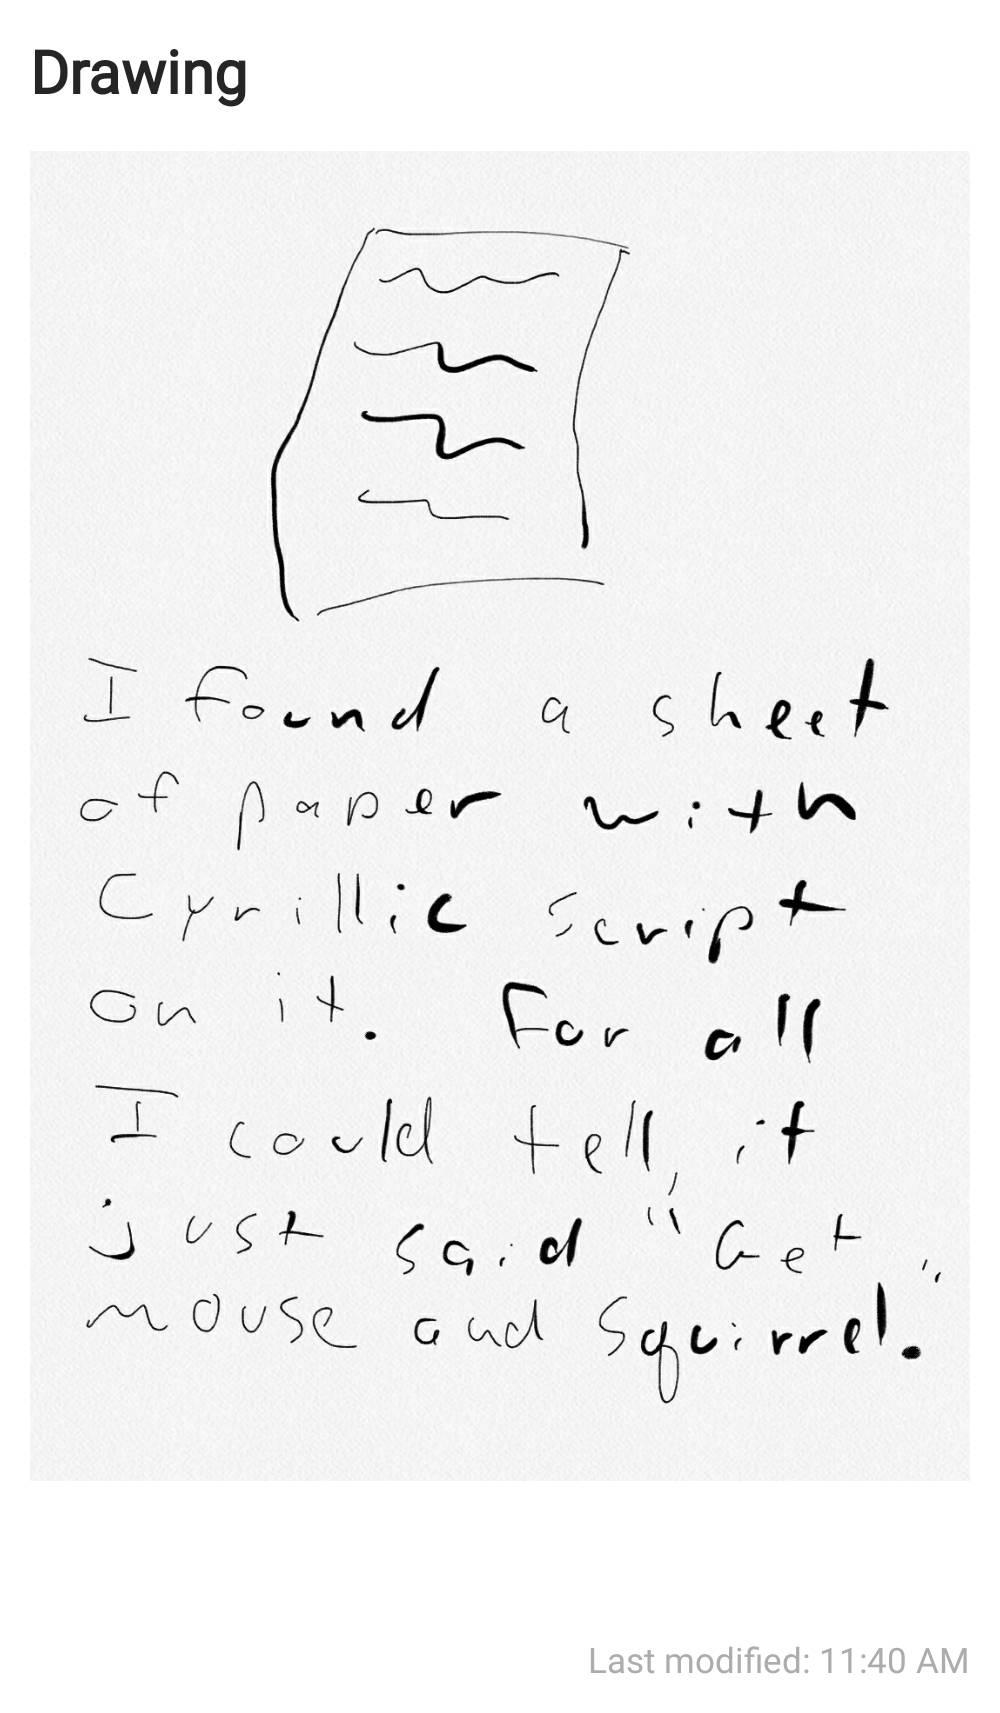 Drawing
I found a sheet
of paper with
Cyrillic script
on it. For all
I could tell, it
just said "Get
mouse and squirrel."
Last modified: 11:40 AM